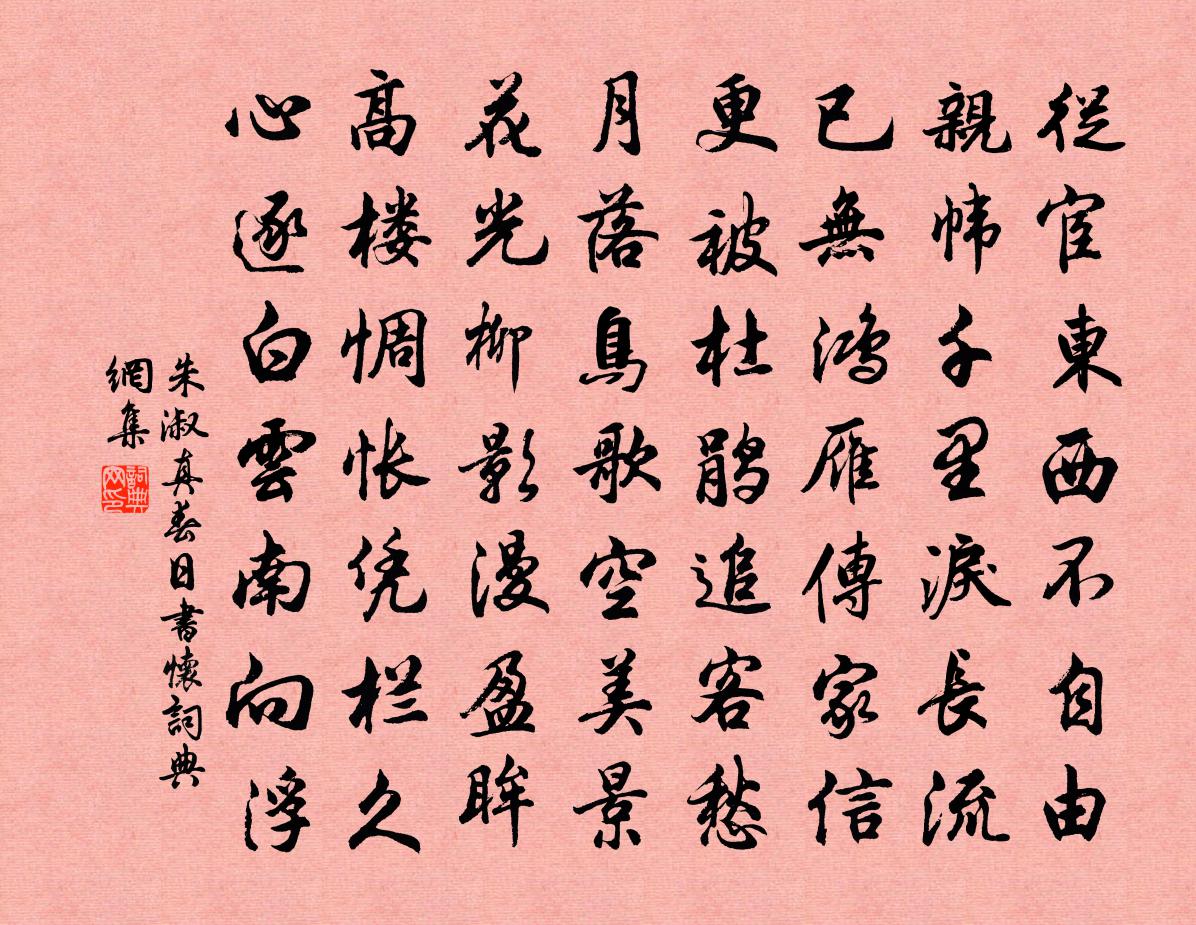 從宦東西不自由
親帏千里淚長流
已無鴻雁傳家信
更被杜鹃追客愁
月落鳥歌空美景
花光柳影漫盈眸
高楼惆怅凭栏久
心逐白雲南向浮
朱淑真春日書懷詞典
網集
詞典
网印